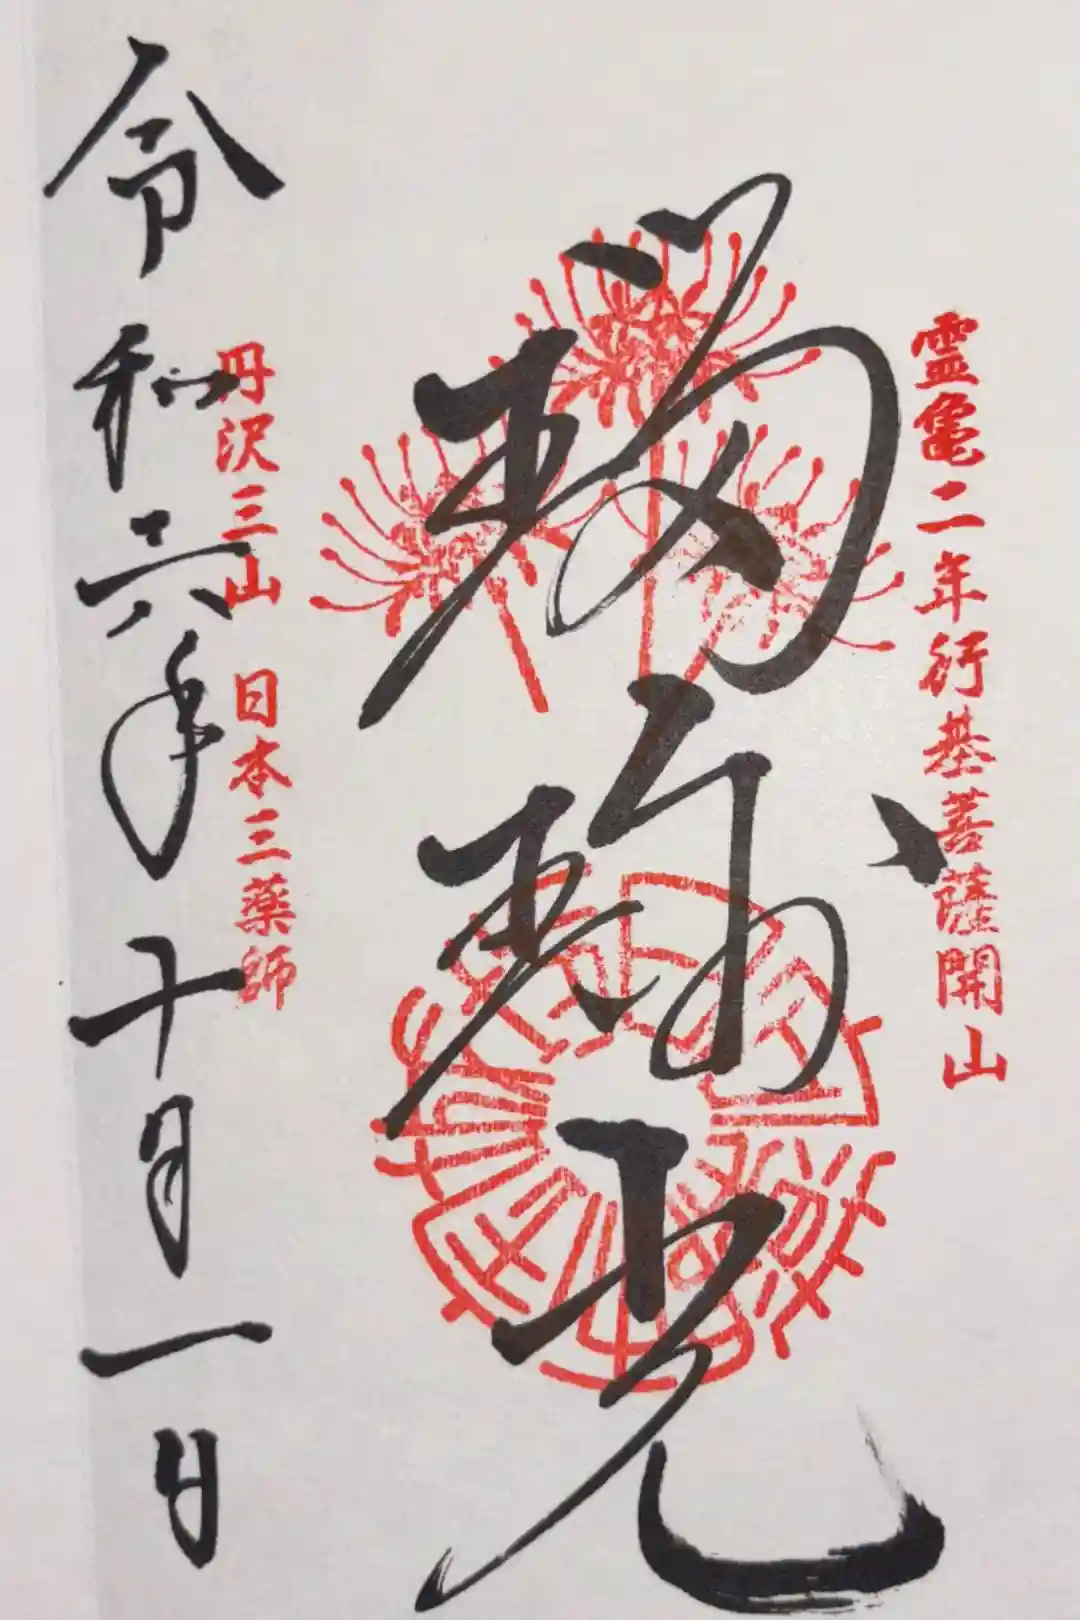 霊亀二年行基菩薩開山
瑠璃光
丹沢三山 日本三薬師
令和六年十月一日